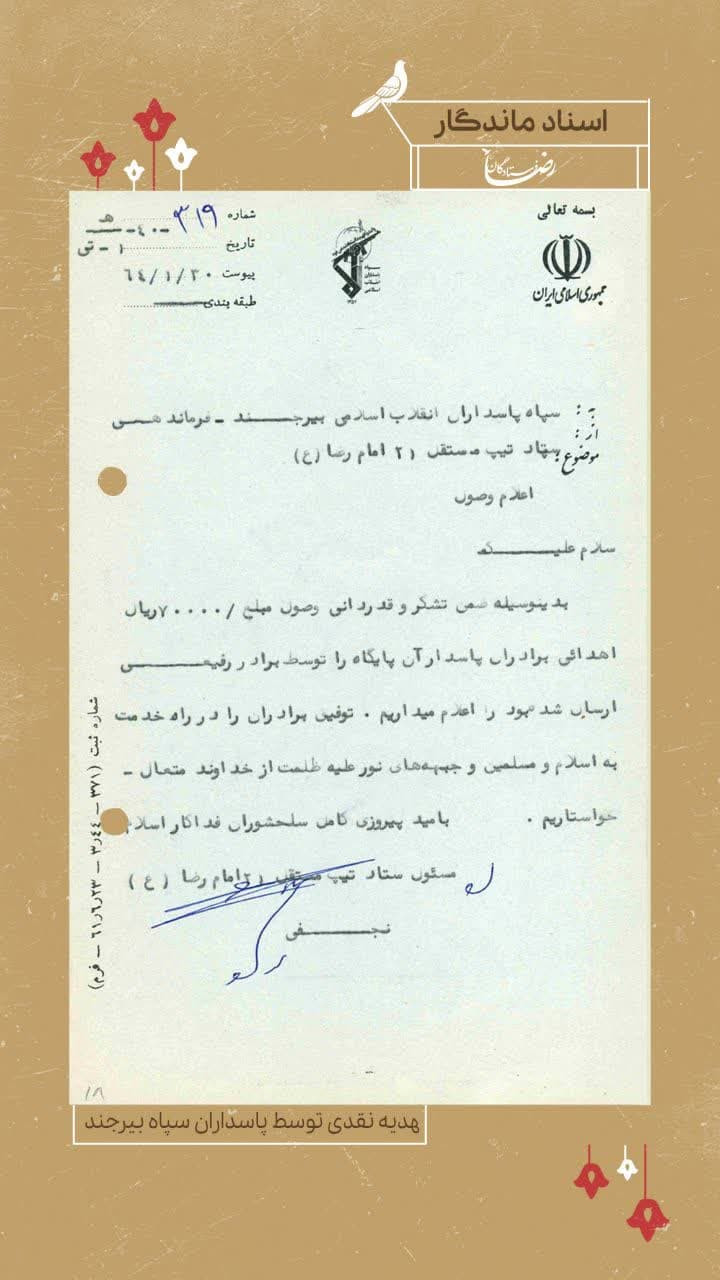 اسناد ماندگار
فرستادگان رضا
بسمه تعالی
جمهوری اسلامی ایران
سپاه
پاسداران
انقلاب
اسلامی
شماره ۳۱۹-۴۰-هـ
تاریخ ۱-تی
پیوست ۶۴/۱/۳۰
طبقه بندی
به: سپاه پاسداران انقلاب اسلامی بیرجند - فرماندهی
از: ستاد تیپ مستقل ۲۱ امام رضا (ع)
موضوع:
اعلام وصول
سلام علیکم
بدینوسیله ضمن تشکر و قدردانی وصول مبلغ /۷۰۰۰۰ریال
اهدائی برادران پاسدار آن پایگاه را توسط برادر رفیعی
ارسال شده بود را اعلام میداریم . توفیق برادران را در راه خدمت
به اسلام و مسلمین و جبهه‌های نور علیه ظلمت از خداوند متعال -
خواستاریم . بامید پیروزی کامل سلحشوران فداکار اسلام
مسئول ستاد تیپ مستقل ۲۱ امام رضا (ع)
نجفی
شماره ثبت (۳۷۱ – ۳٫۴۴ – ۶۱٫۶٫۲۳ – فرم)
۱۸
هدیه نقدی توسط پاسداران سپاه بیرجند